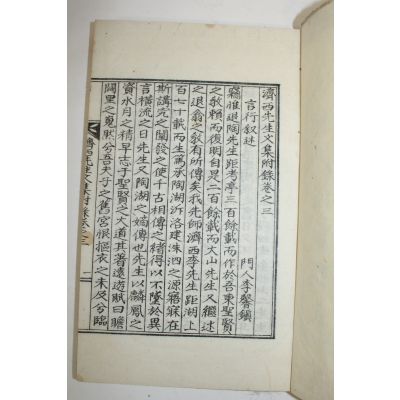 濟西先生文集附錄卷之三
言行叙述
門人李馨鎭
竊惟退陶先生距考亭三百餘載而作於吾東聖賢
之敎賴而復明自是二百餘載而大山先生又繼述
之退翁之敎有所傳矣我先師濟西李先生距湖上
百七十載而生篤承陶湖沂洛建洙泗之源寤寐在
斯講究之闡發之使千古相傳之緖得以不墜於異
言橫流之日先生又陶湖之嫡傳也先生以麟鳳之
資水月之精早志于聖賢之大道其著遠遊賦曰瞻
闕里之嵬然兮吾夫子之舊宮恨摳衣之未及兮臨
濟西先生文集附錄卷之三
一